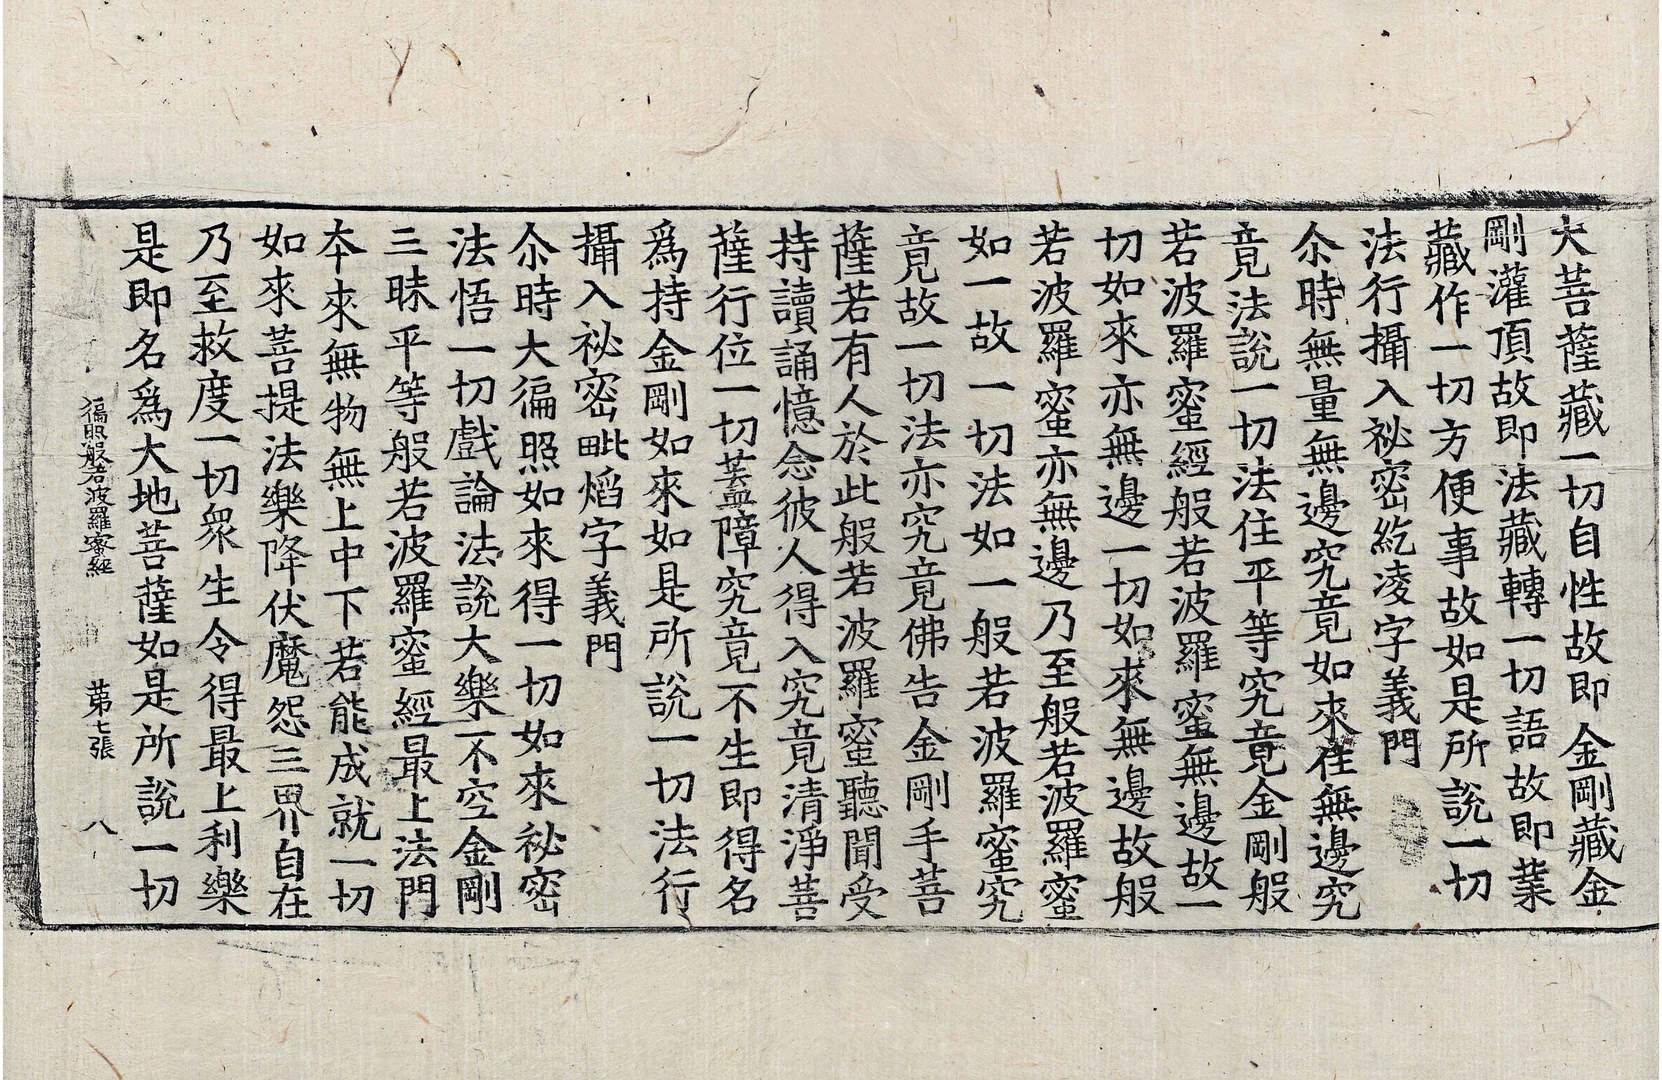 大菩薩藏一切自性故即金剛藏金
剛灌頂故即法藏轉一切語故即業
藏作一切方便事故如是所說一切
法行攝入祕密紇凌字義門
尒時無量無邊究竟如來住無邊究
竟法說一切法住平等究竟金剛般
若波羅蜜經般若波羅蜜無邊故一
切如來亦無邊一切如來無邊故般
若波羅蜜亦無邊乃至般若波羅蜜
如一故一切法如一般若波羅蜜究
竟故一切法亦究竟佛告金剛手菩
薩若有人於此般若波羅蜜聽聞受
持讀誦憶念彼人得入究竟清淨菩
薩行位一切蓋障究竟不生即得名
爲持金剛如來如是所說一切法行
攝入祕密毗焰字義門
尒時大徧照如來得一切如來祕密
法悟一切戲論法說大樂不空金剛
三昧平等般若波羅蜜經最上法門
本來無物無上中下若能成就一切
如來菩提法樂降伏魔怨三界自在
乃至救度一切衆生令得最上利樂
是即名爲大地菩薩如是所說一切
徧照般若波羅蜜經 第七張 八